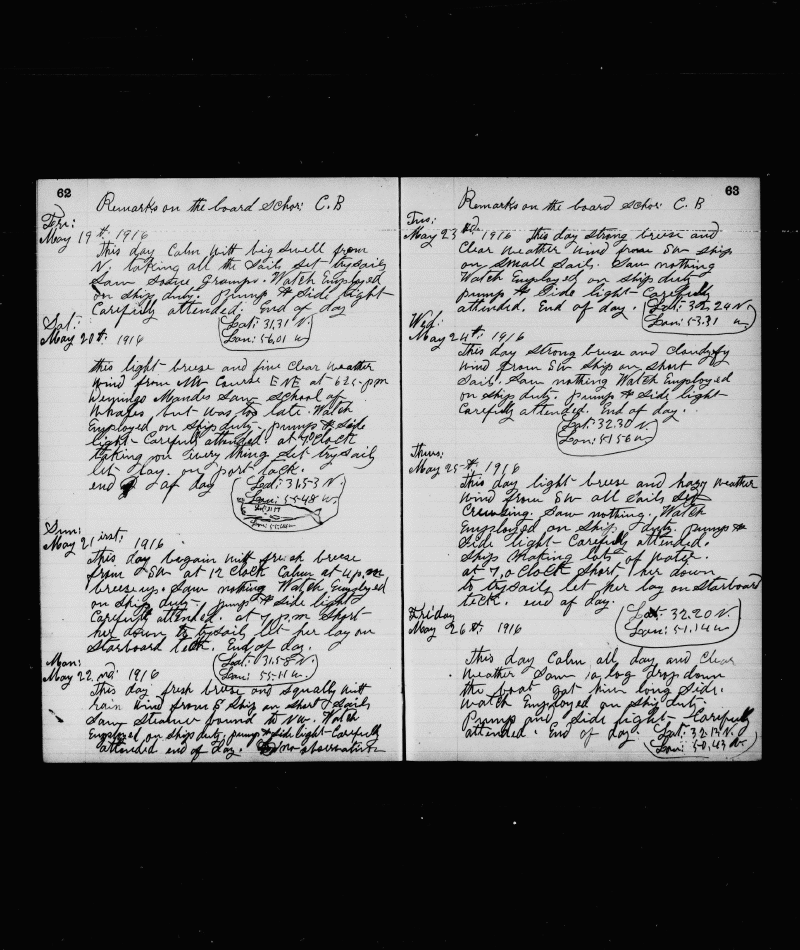 62
Remarks on the board Schor: C.B
Fri:
May 19th. 1916
This day Calm witt big swell from
N. taking all the Sails Set trysails
Saw Some Gramps. Watch Employed
on Ship duty. pump & Side light
Carefully attended. End of day
Lad: 31.31 N.
Lon: 56.01 W
Sat:
May 20th. 1916
this light breeze and fine Clear weather
Wind from Course ENE at 6 p.m
Mandes Saw School of
Whales, but was too late. Watch
Employed on Ship duty, pump & Side
light Carefully attended. at 7 O Clock
taking on Every thing Set trysails
let lay. on port tack.
end of day
Lad: 31.53 N.
Lon: 55.48 W.
Sun:
May 21 irst. 1916
this day begain witt fresh breeze
from SW at 12 Clock Calm at 4 p.m
breese up. Saw nothing Watch Employed
on Ship duty, pump & Side light
Carefully attended. at 7 p.m Short
her down to trysails let her lay on
Starboard tack. End of day.
Lad: 31.58 N.
Lon: 55.11 W
Mon:
May 22.nd 1916
This day fresh breese and Squally witt
rain Wind from E Ship on Short Sails
Saw Steamer bound to NW. Watch
Employed on Ship duty, pump & Side light Carefully
attended end of day. no observation
63
Remarks on the board Schor: C.B
Tus:
May 23 rd 1916 this day Strong breese and
Clear Weather Wind from SW Ship
on Small Sails. Saw nothing
Watch Employed on Ship duty
pump & Side light Carefully
attended. End of day.
Lad: 32.24 N
Lon: 53.31 W
Wed:
May 24th. 1916
This day Strong breese and Cloudy
Wind from SW Ship on Short
Sails. Saw nothing Watch Employed
on Ship duty. pump & Side light
Carefuly attended. End of day.
Lad: 32.30 N
Lon: 51.56 W
Thurs:
May 25th. 1916
This day light breese and hazy Weather
Wind from SW all Sails Set
Cruusing. Saw nothing. Watch
Employed on Ship duty. pump &
Side light Carefuly attended.
Ship Making lots of Water.
at 7, O Clock Short her down
to trysails let her lay on Starboard
teck. end of day.
Lad: 32.20 N.
Lon: 51.14 W
Friday
May 26th. 1916
This day Calm all day and Clear
Weather Saw a log drop down
the boat got him long Side.
Watch Employed on Ship duty
Pump and Side light Carefully
attended. End of day.
Lad: 32.13 N.
Lon: 50.43 W